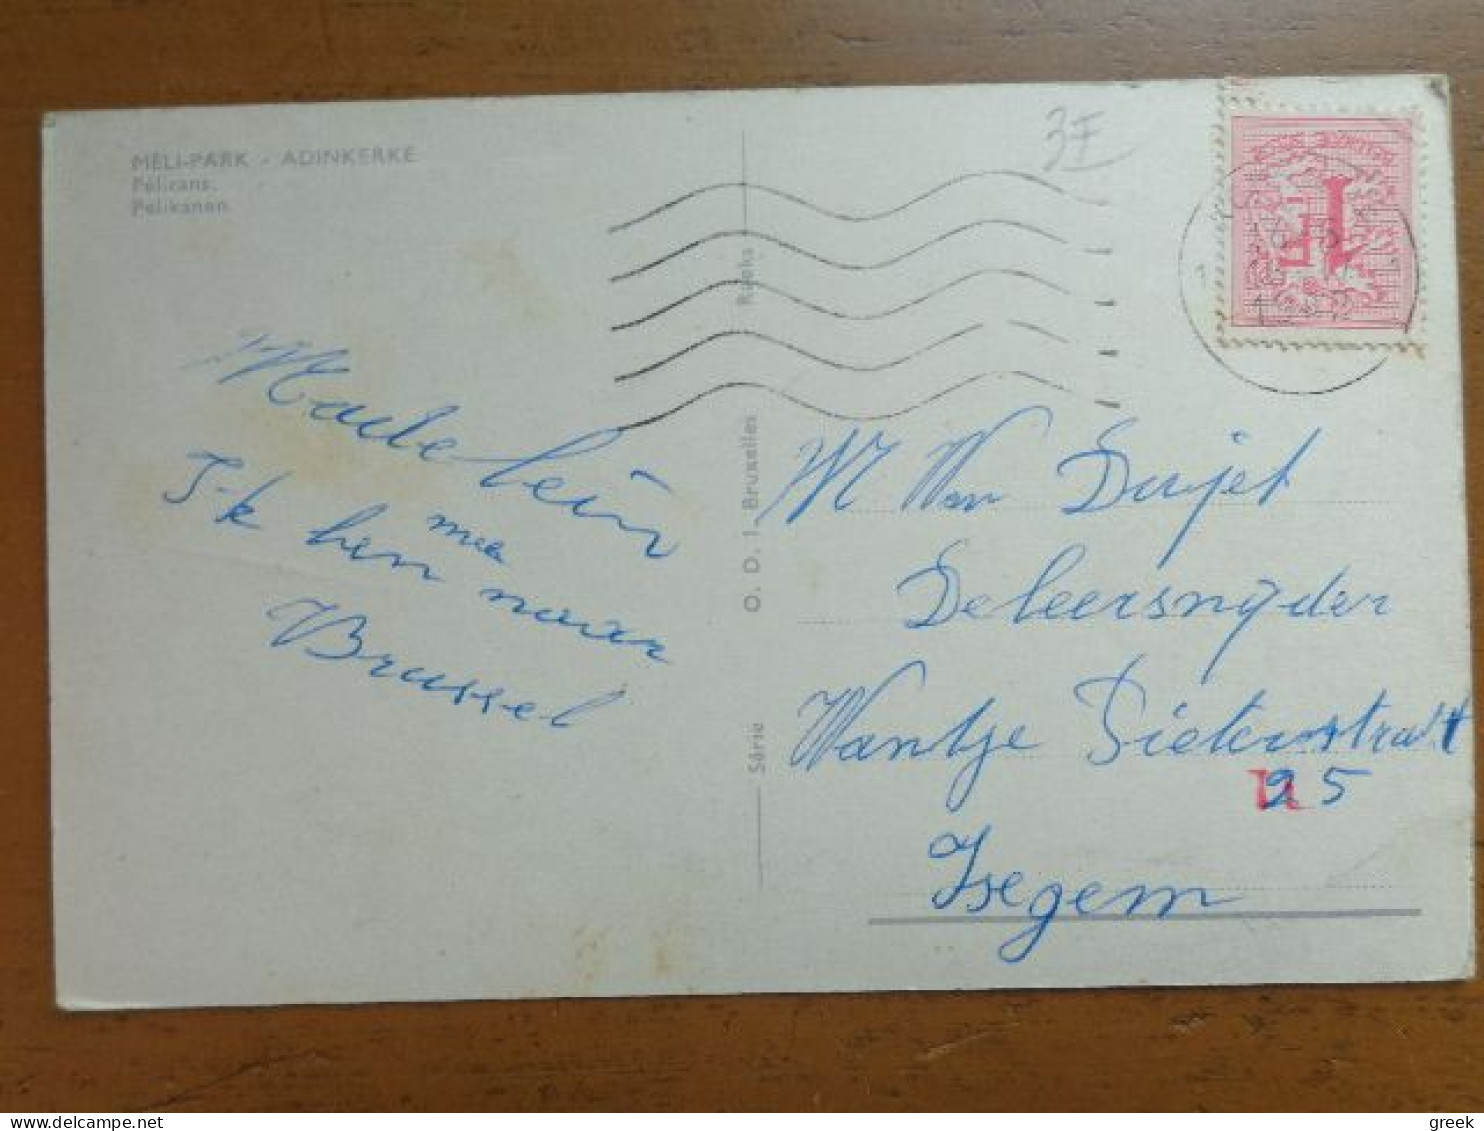 MELI-PARK - ADINKERKE
Pélicans.
Pelikanen
3F
1F
Madelein
mee
Ik ben naar
Brussel
O. D. I. Bruxelles
Reeks
Série
M Van Dujet
Deleersnyder
Wantje Pieterstraat
25
Isegem
delcampe.net
greek